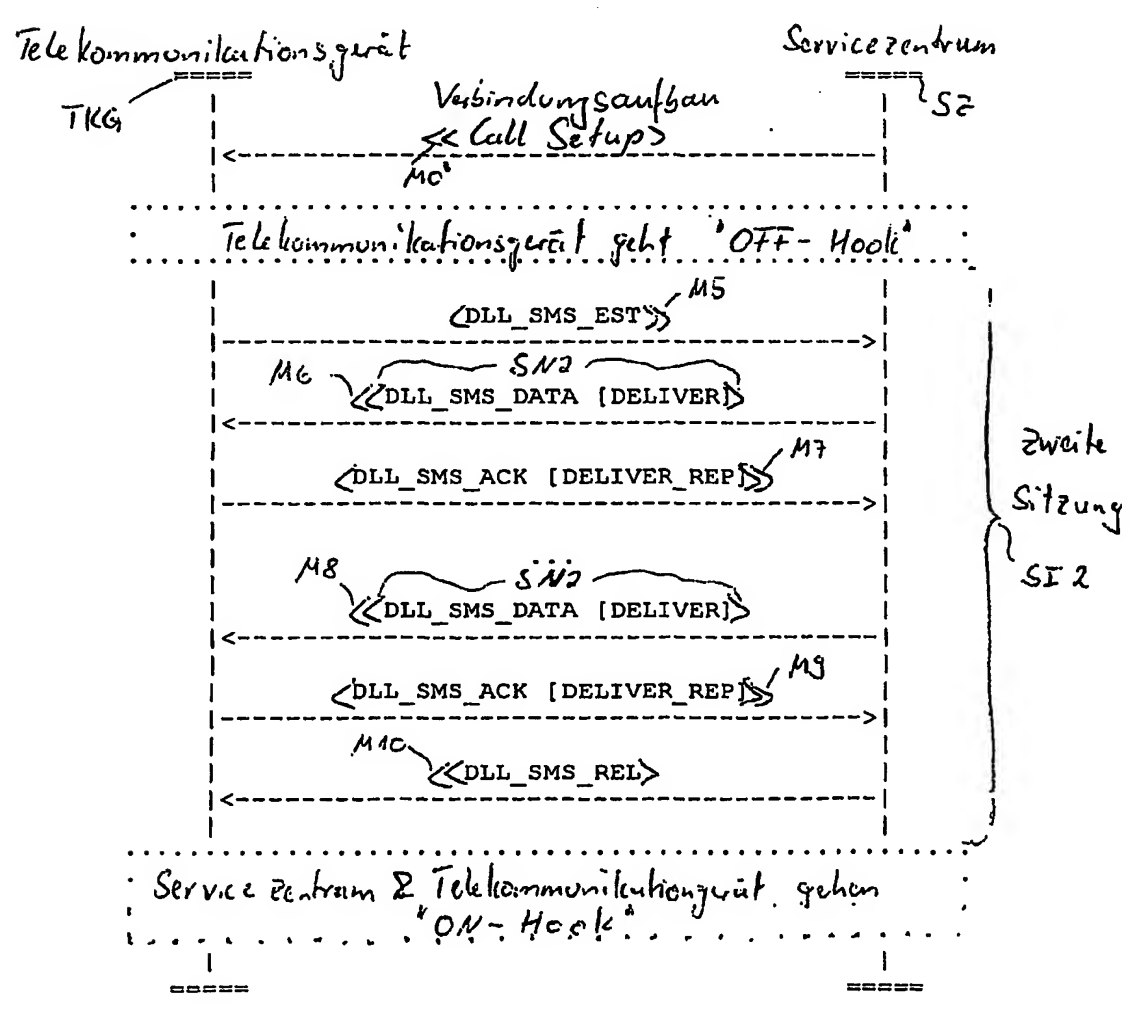 Telekommunikationsgerät
Servicezentrum
TKG
SZ
Verbindungsaufbau
<< Call Setup>
M0'
Telekommunikationsgerät geht "OFF-Hook"
M5
<DLL_SMS_EST>>
SN2
M6
<<DLL_SMS_DATA [DELIVER]>
M7
<DLL_SMS_ACK [DELIVER_REP]>>
Zweite
Sitzung
SI2
SN2
M8
<<DLL_SMS_DATA [DELIVER]>
M9
<DLL_SMS_ACK [DELIVER_REP]>>
M10
<<DLL_SMS_REL>
Servicezentrum & Telekommunikationgerät gehen
"ON-Hook"